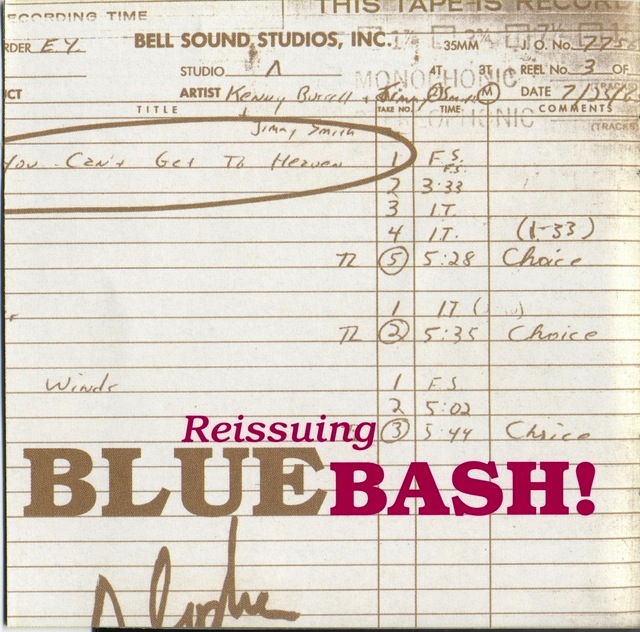 THIS TAPE IS RECOR
ECORDING TIME
RDER E.Y. BELL SOUND STUDIOS, INC. 1⅞ 3¾ 7½
35MM J. O. No. 775
STUDIO A 4T 3T REEL No. 3 OF
MONOPHONIC
CT ARTIST Kenny Burrell + Jimmy Smith M DATE
TITLE TAKE NO. TIME COMMENTS
+ Jimmy Smith
OPHONIC (TRACKS
You Can't Get To Heaven 1 F.S.
F.S.
2 3:33
3 I.T.
4 I.T. (1-33)
72 5 5:28 Choice
1 IT
72 2 5:35 Choice
Winds 1 F.S
2 5:02
3 5:44 Choice
Reissuing
BLUE BASH!